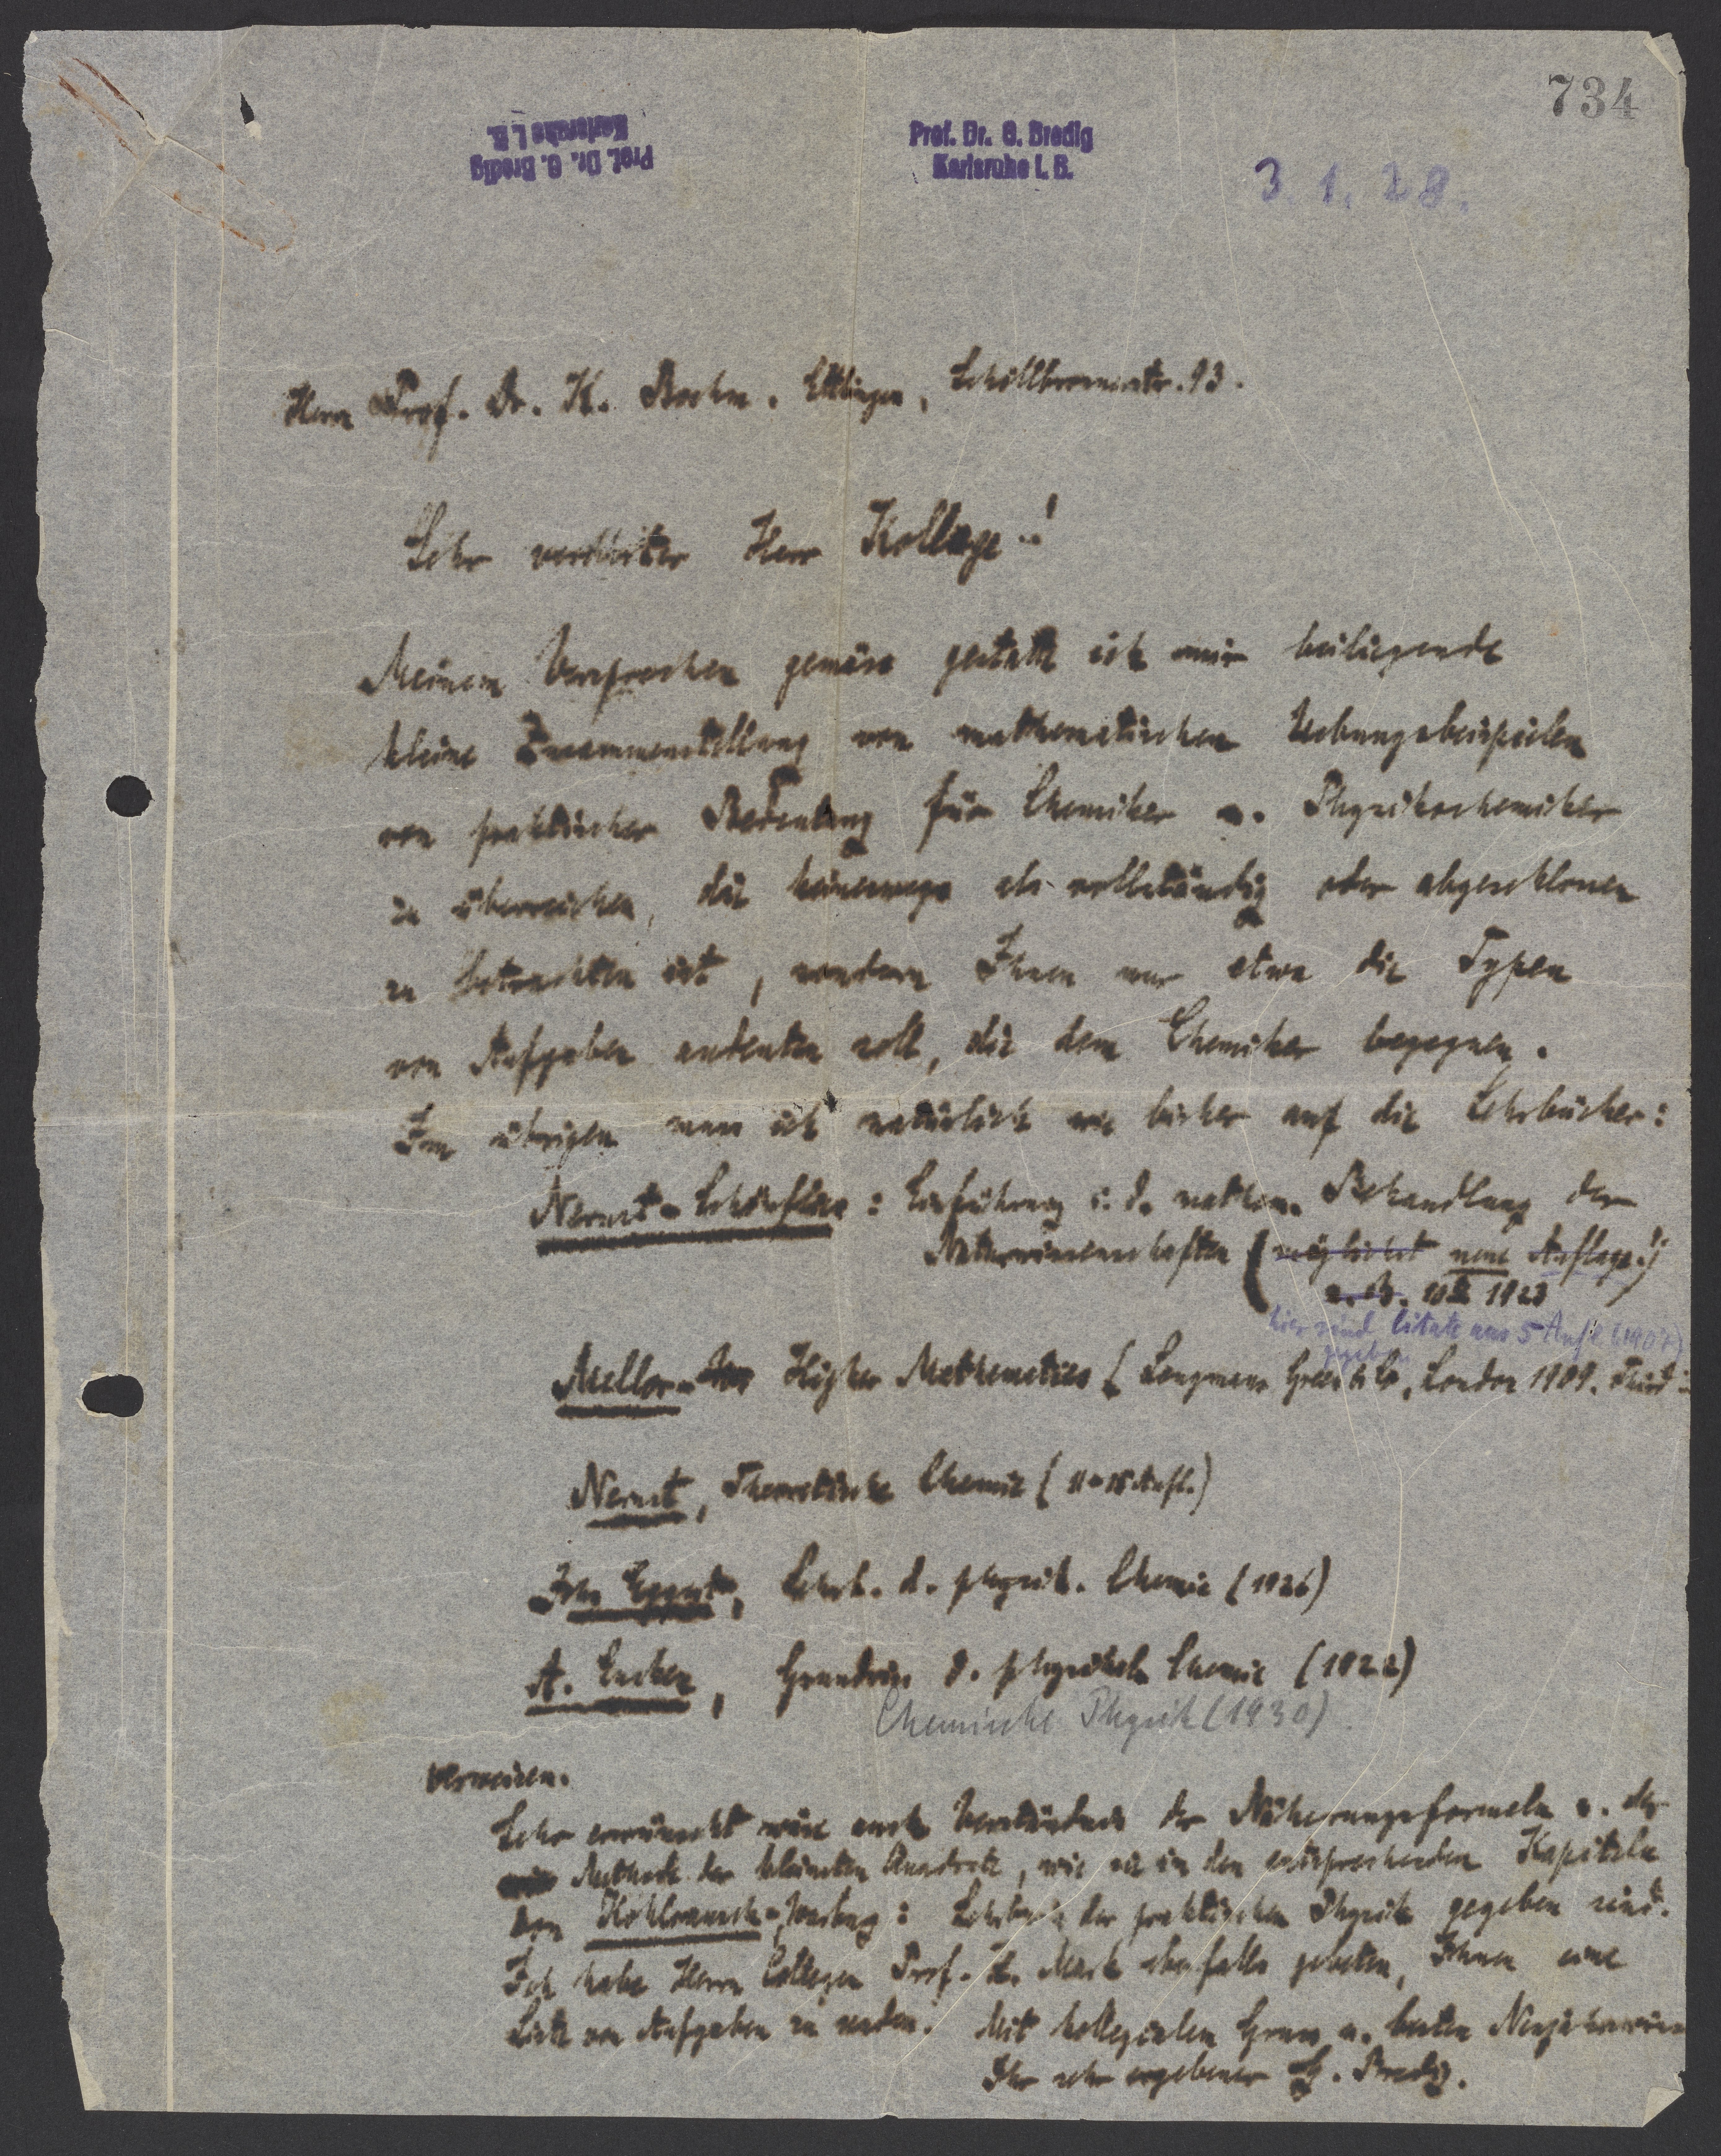 734
Prof. Dr. G. Bredig
Karlsruhe i. B.
Prof. Dr. G. Bredig
Karlsruhe i. B.
3. 1. 28.
Herrn Prof. Dr. K. Boehm. Ettlingen, Schöllbronnerstr. 93.
Sehr verehrter Herr Kollege!
Meinem Versprechen gemäss gestatte ich mir beiliegende
kleine Zusammenstellung von mathematischen Uebungsbeispielen
von praktischer Bedeutung für Chemiker u. Physikochemiker
zu überreichen, die keineswegs als vollständig oder abgeschlossen
zu betrachten ist, sondern Ihnen nur etwa die Typen
von Aufgaben andeuten soll, die dem Chemiker begegnen.
Im übrigen muss ich natürlich wie bisher auf die Lehrbücher:
Nernst-Schönflies: Einführung i. d. mathem. Behandlung der
Naturwissenschaften (möglichst neue Auflage!)
z. B. 10te 1923
hier sind Citate aus 5 Aufl. (1907)
gegeben
Mellor- Higher Mathematics (Longmans Green & Co, London 1909. Third
Nernst, Theoretische Chemie (11-15 Aufl.)
Joh. Eggert, Lehrb. d. physik. Chemie (1926)
A. Eucken, Grundriss d. physikal. Chemie (1922)
Chemische Physik (1930)
verweisen.
Sehr erwünscht wäre auch Verständnis der Näherungsformeln u. der
Methode der kleinsten Quadrate, wie sie in den entsprechenden Kapiteln
von Kohlrausch-Warburg: Lehrbuch der praktischen Physik gegeben sind.
Ich habe Herrn Collegen Prof. H. Mark ebenfalls gebeten, Ihnen eine
Liste von Aufgaben zu senden. Mit kollegialem Gruss u. besten
Ihr sehr ergebener G. Bredig.